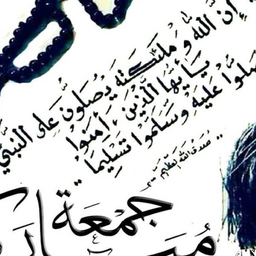 إِنَّ اللَّهَ وَمَلَٰئِكَتَهُ يُصَلُّونَ عَلَى النَّبِيِّ
يَا أَيُّهَا الَّذِينَ آمَنُوا
صَلُّوا عَلَيْهِ وَسَلِّمُوا تَسْلِيمًا
صدق الله العظيم
جُمْعَة